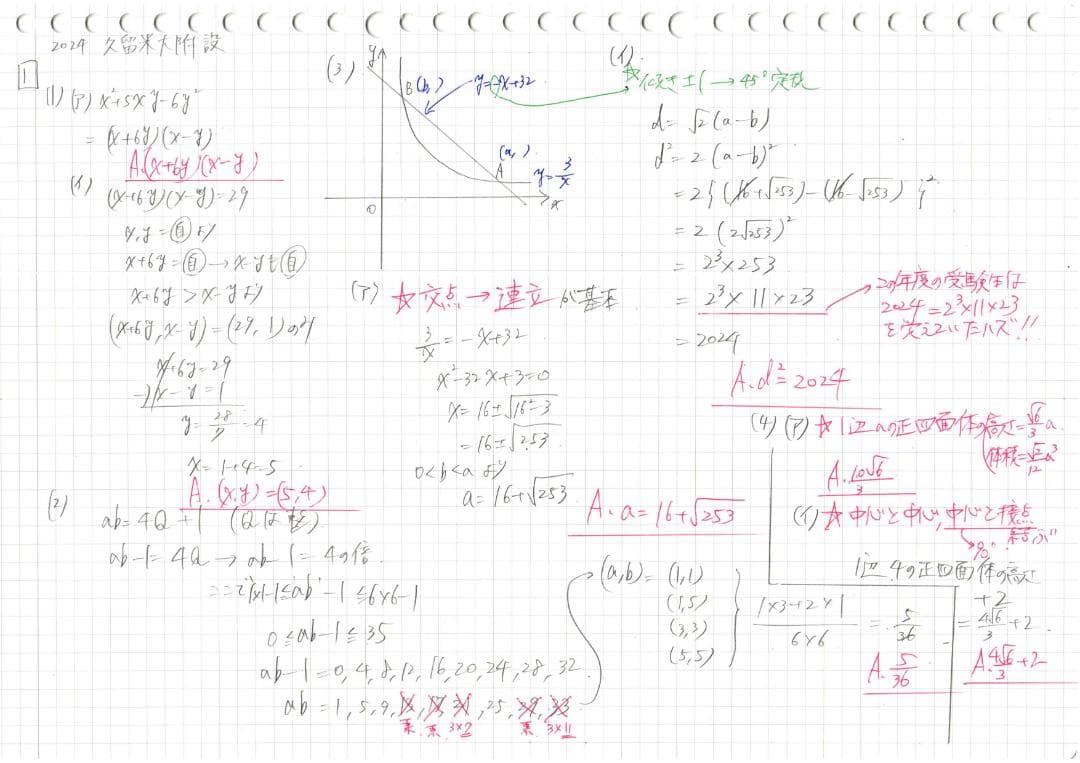 2024 久留米大附設
1
(1) (ア) x²+5xy-6y²
= (x+6y)(x-y)
A.(x+6y)(x-y)
(イ)
(x+6y)(x-y)=29
x,y=自より
x+6y=自→x-yも自
x+6y>x-yより
(x+6y,x-y)=(29,1)のみ
x+6y=29
-)x-y=1
y=28/7=4
x=1+4=5
A.(x,y)=(5,4)
(2)
ab=4Q+1 (Qは整)
ab-1=4Q→ab-1=4の倍
ここで1×1-1≦ab-1≦6×6-1
0≦ab-1≦35
ab-1=0,4,8,12,16,20,24,28,32
ab=1,5,9,13,17,21,25,29,33
素 素 3×7 素 3×11
(a,b)=(1,1)
(1,5)
(3,3)
(5,5)
(1×3+2×1)/(6×6) = 5/36
A. 5/36
(3)
y
B(b, )
y=-x+32
(a, )
A
y=3/x
x
0
(ア) ☆交点→連立が基本
3/x=-x+32
x²-32x+3=0
x=16±√(16²-3)
=16±√253
0<b<aより
a=16+√253
A. a=16+√253
(イ)
☆傾き±1→45°定規
d=√2(a-b)
d²=2(a-b)²
=2{(16+√253)-(16-√253)}²
=2(2√253)²
=2³×253
=2³×11×23
=2024
この年度の受験生は
2024=2³×11×23
を覚えていたハズ!!
A.d²=2024
(4) (ア) ☆1辺aの正四面体の高さ=√6/3 a
(体積=√2/12 a³
A. 10√6/3
(イ) ☆中心と中心,中心と接点
結ぶ
90°
1辺4の正四面体の高さ
+2
=4√6/3+2
A. 4√6/3+2